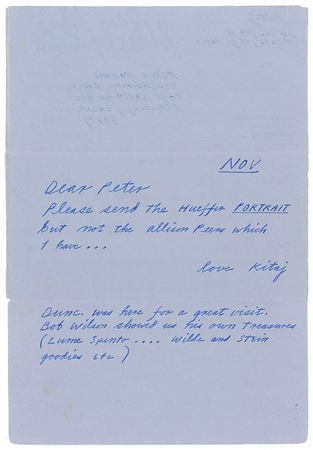 NOV
Dear Peter
Please send the Hueffer PORTRAIT
but not the Allison Peers which
I have ...
love Kitaj
Dunc. was here for a great visit.
Bob Wilson showed us his own treasures
(Lume Spento .... Wilde and Stein
goodies etc)